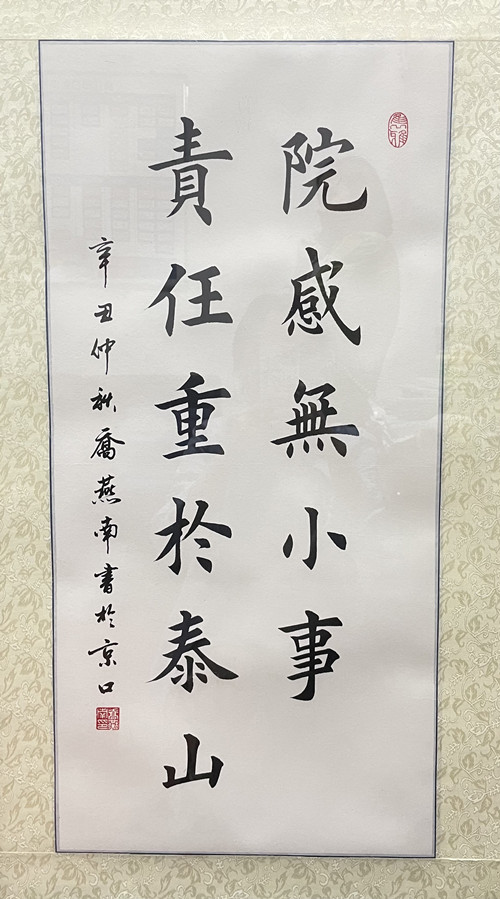 院感無小事
責任重於泰山
辛丑仲秋喬燕南書於京口